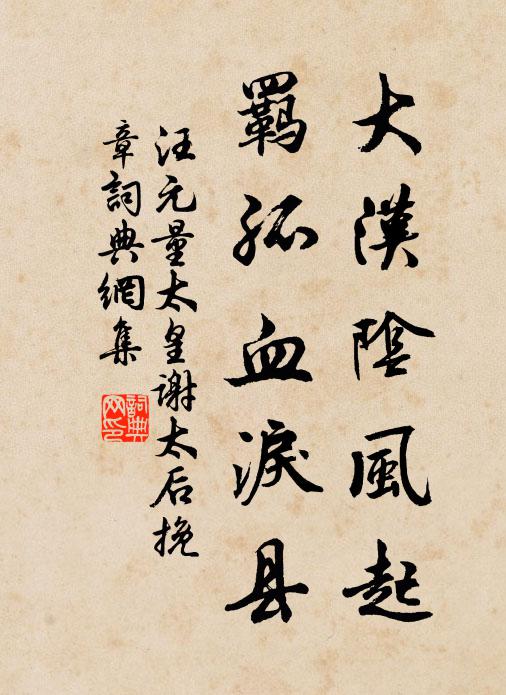 大漠陰風起
羈孤血淚县
汪元量太皇謝太后挽
章詞典網集
詞典网印